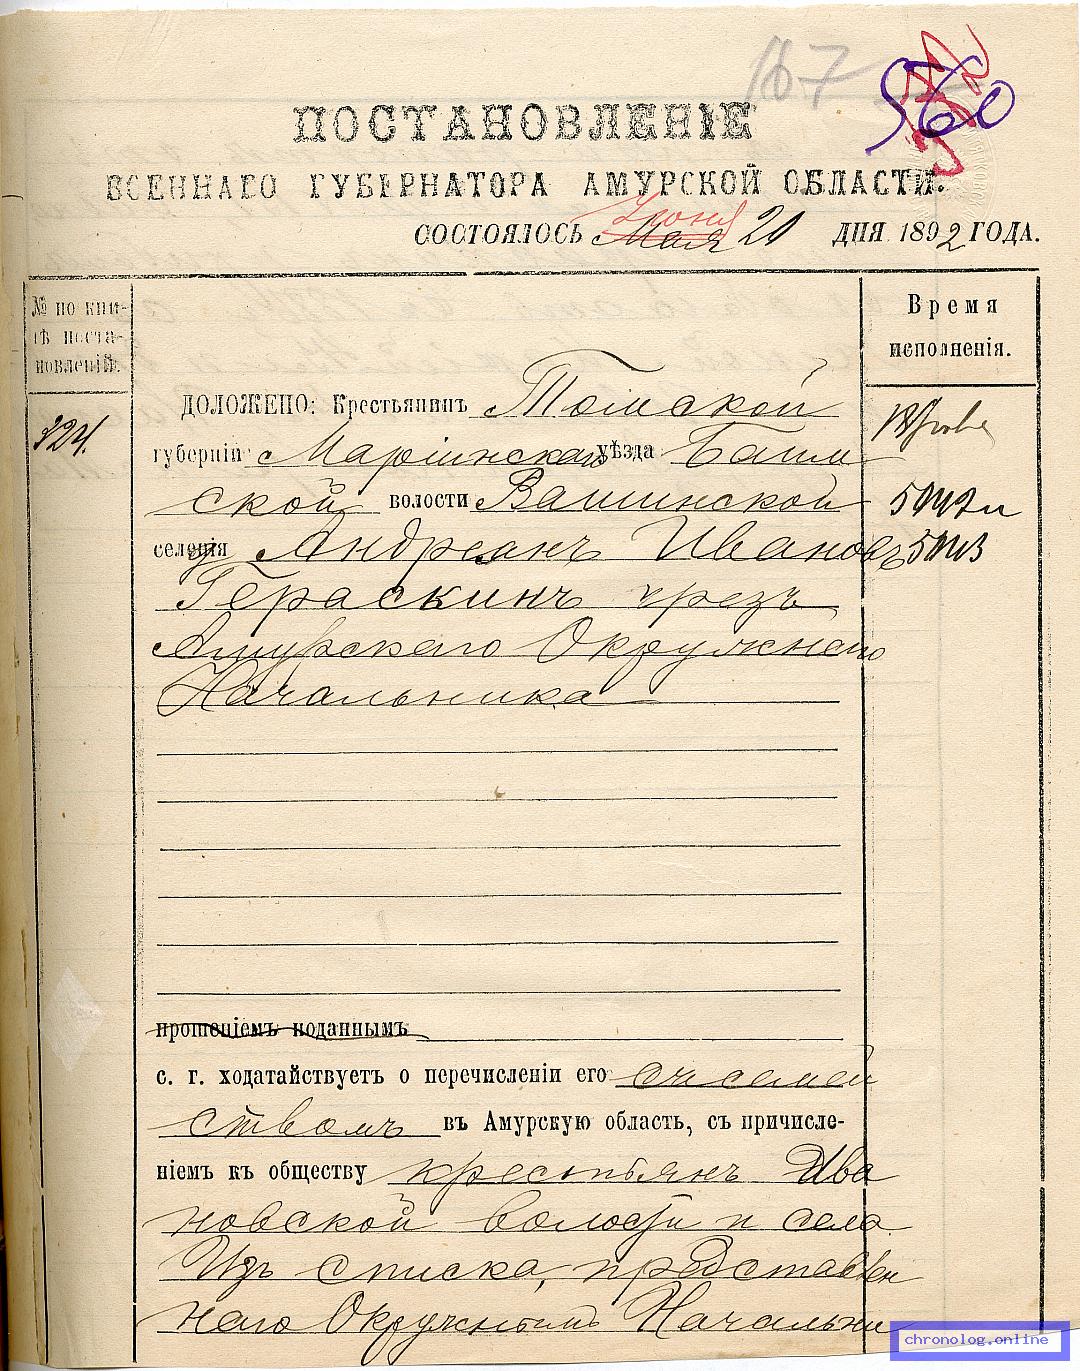 167
560
ПОСТАНОВЛЕНІЕ
ВОЕННАГО ГУБЕРНАТОРА АМУРСКОЙ ОБЛАСТИ.
СОСТОЯЛОСЬ Мая Іюня 20 ДНЯ 1892 ГОДА.
№ по кни-
гѣ поста-
новленій.
Время
исполненія.
324.
ДОЛОЖЕНО: Крестьянинъ Томской
губерніи Маріинскаго уѣзда Баим
ской волости
селенія Андреянъ Ивановъ
Гераскинъ чрезъ
Амурскаго Окружнаго
Начальника
прошеніемъ поданнымъ
с. г. ходатайствуетъ о перечисленіи его съ семей
ствомъ въ Амурскую область, съ причисле-
ніемъ къ обществу крестьянъ Ива
новской волости и села.
Изъ списка, представлен
наго Окружнымъ Начальни
chronolog.online